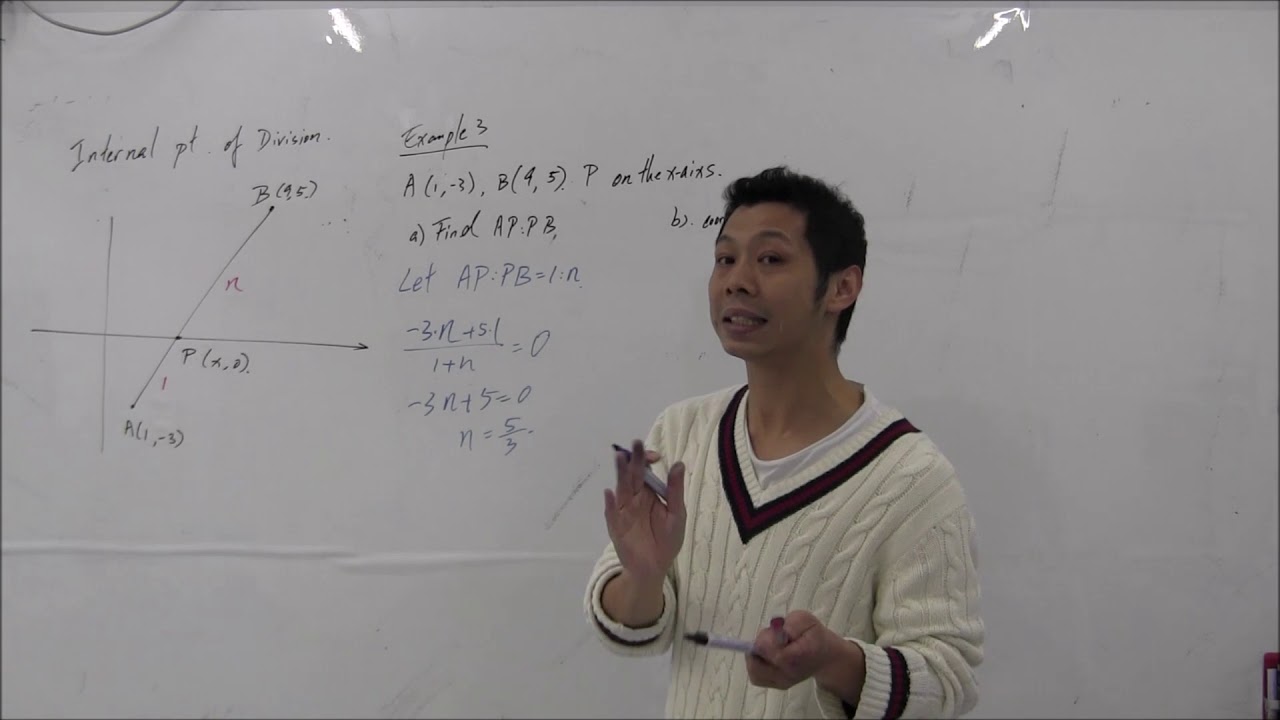 Internal pt. of Division.
B(9,5)
n
P(x,0).
1
A(1,-3)
Example 3
A(1,-3), B(9,5). P on the x-aixs.
a) Find AP:PB, b).
Let AP:PB=1:n.
-3·n+5·1
1+n
=0
-3n+5=0
n=5/3.